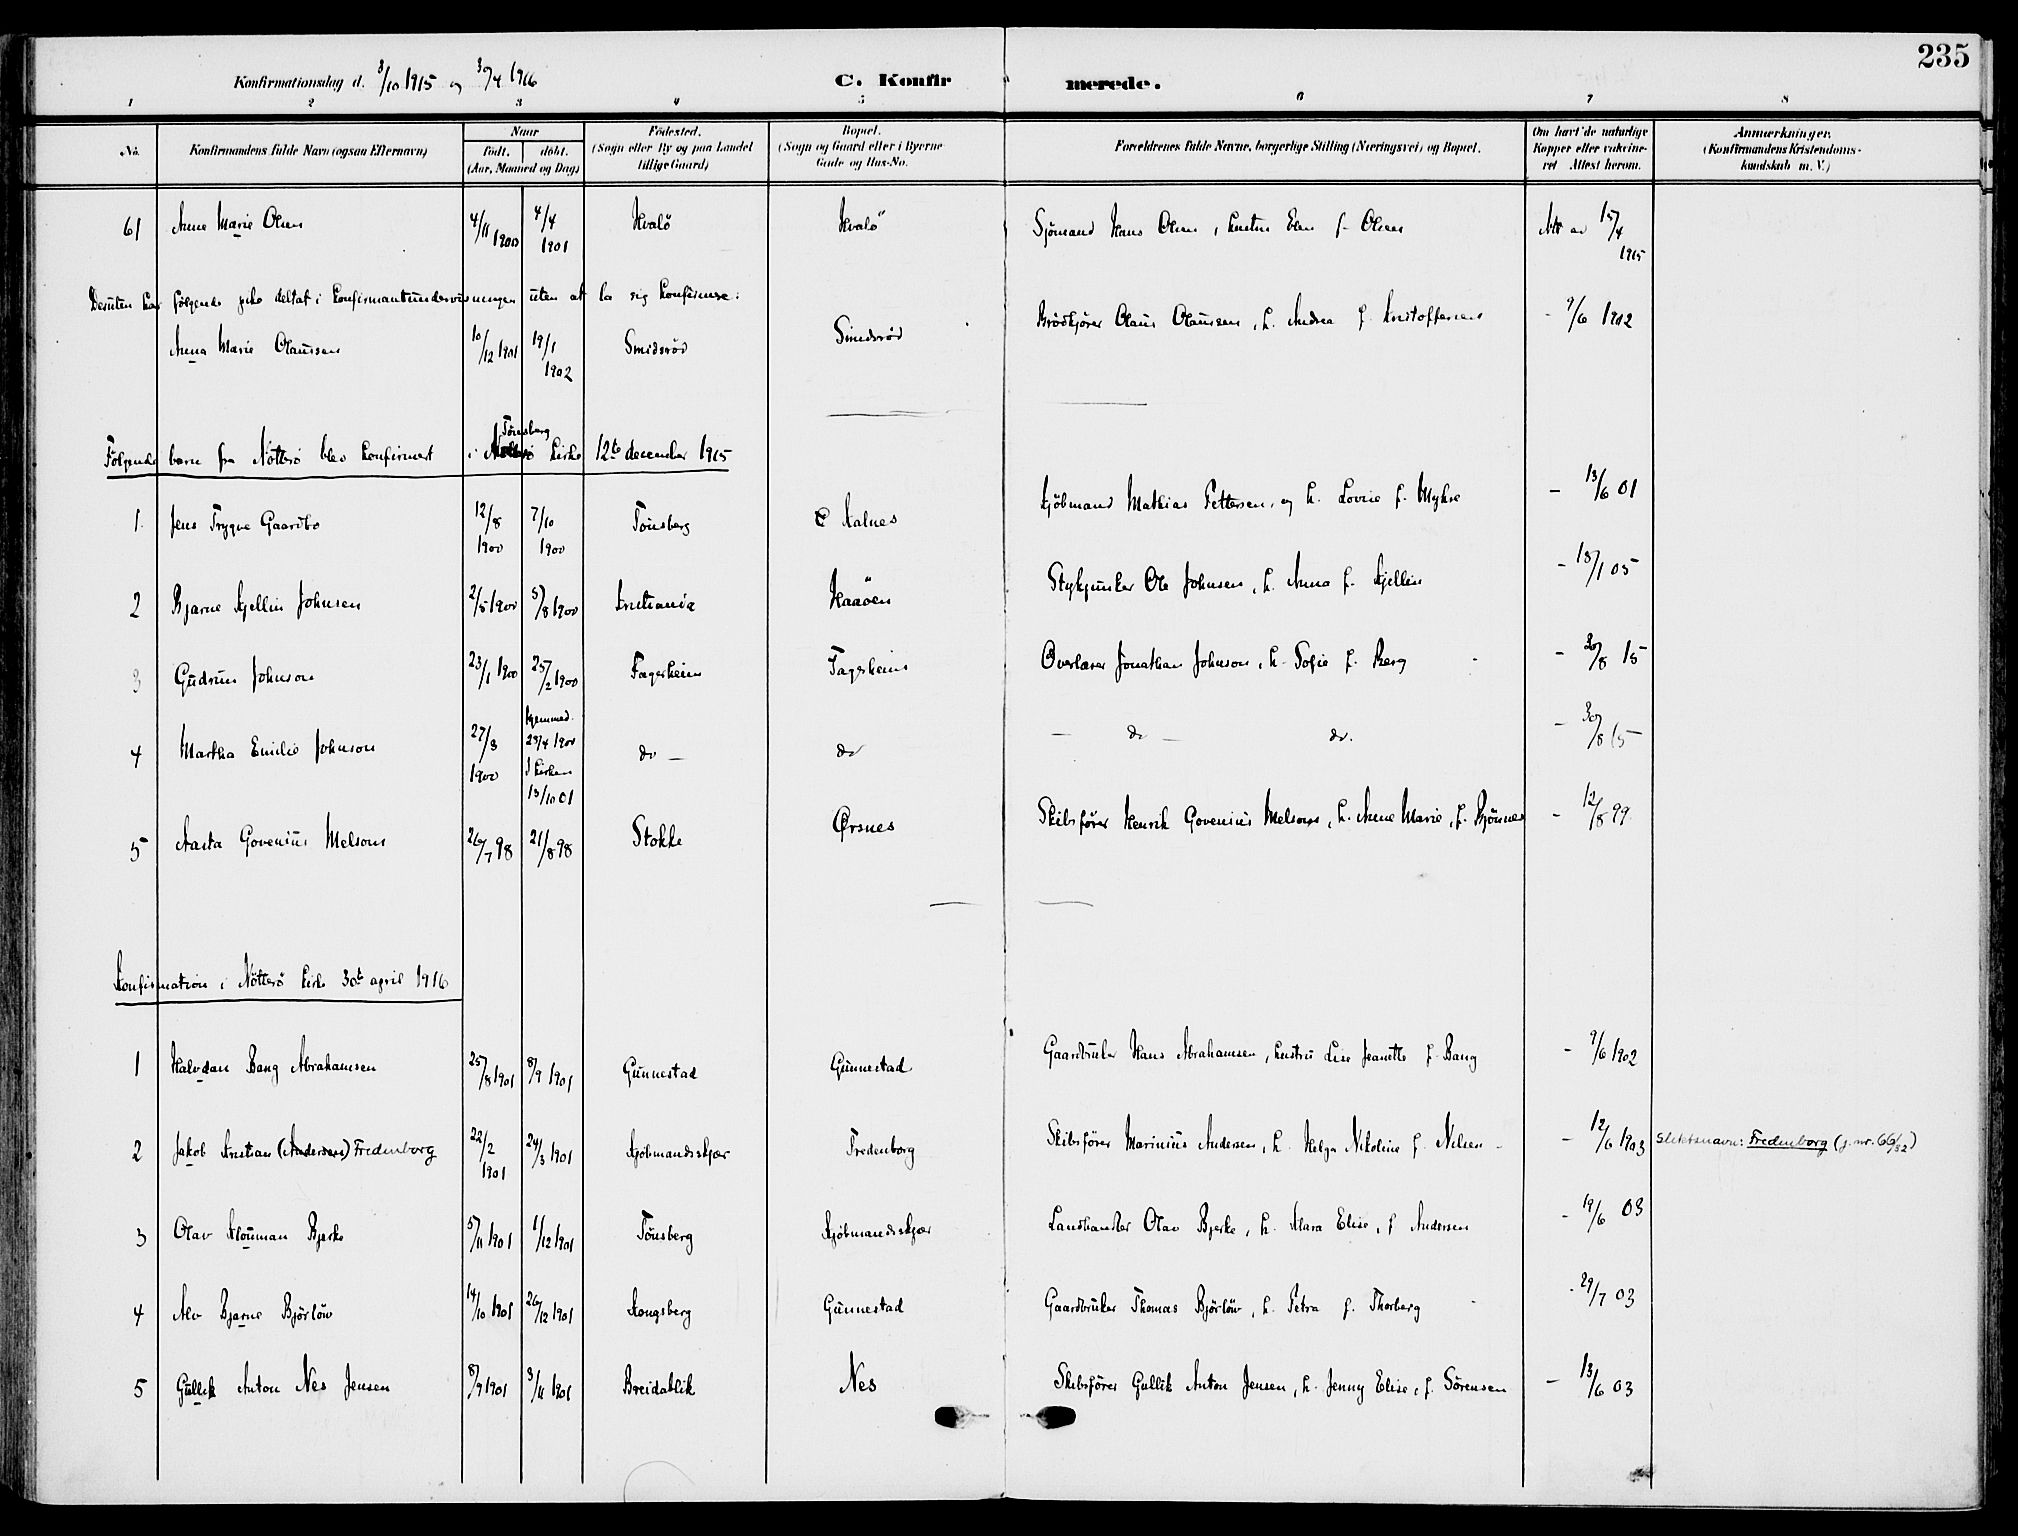 235
Konfirmationsdag d. 3/10 1915 og 30/4 1916 C. Konfirmerede.
1 2 3 4 5 6 7 8
No. Konfirmandens fulde Navn (ogsaa Efternavn) Naar født. døbt. (Aar, Maaned og Dag) Fødested. (Sogn eller By og paa Landet tillige Gaard) Bopæl. (Sogn og Gaard eller i Byerne Gade og Hus-No. Forældrenes fulde Navne, borgerlige Stilling (Næringsvei) og Bopæl. Om havt de naturlige Kopper eller vakcineret Attest herom. Anmærkninger. (Konfirmandens Kristendomskundskab m. V.)
61 Anne Marie Olsen 4/11 1900 4/4 1901 Hvalö Hvalö Sjömand Hans Olsen, hustru f. Olsen Att av 15/4 1915
Desuten har følgende pike deltat i konfirmantundervisningen uten at la sig konfirmere:
Anna Marie Olaussen 10/12 1901 19/1 1902 Smidsröd Smidsröd Brödkjörer Olaus Olaussen, h. Andrea f. Kristoffersen - 9/6 1902
Følgende barn fra Nötterö blev konfirmert i Tönsberg kirke 12te december 1915
1. Jens Trygve Gaardbo 12/8 1900 7/10 1900 Tönsberg Kalnes Kjöbmand Mathias Pettersen, og h. Lovise f. Myhre - 13/6 01
2 Bjarne Kjellin Johnsen 2/5 1900 5/8 1900 Kristiania Haaöen Stykjunker Ole Johnsen, h. Anna f. Kjellin - 13/1 05
3 Gudrun Johnson 23/1 1900 25/2 1900 Fagerheim Fagerheim Overlærer Jonathan Johnson, h. Sofie f. Berg - 30/8 15
4 Martha Emilie Johnson 27/3 1900 hjemmed. 23/4 1900 I kirken 13/10 01 do - do - do - do. - 30/8 15
5 Aasta Govenius Melsom 26/7 98 21/8 98 Stokke Ørsnes Skibsförer Henrik Govenius Melsom, h. Anne Marie, f. Bjönnes - 12/8 99
Konfirmation i Nötterö kirke 30te april 1916
1 Halvdan Bang Abrahamsen 25/8 1901 8/9 1901 Gunnestad Gunnestad Gaardbruker Hans Abrahamsen, hustru Lise Jeanette f. Bang - 9/6 1902
2 Jakob Kristian (Andersen) Fredenborg 22/2 1901 24/3 1901 Kjöbmandsskjær Fredenborg Skibsförer Marinius Andersen, h. Helga Nikoline f. Nelsen - 12/6 1903 Slektsnavn: Fredenborg (j. nr. 66/32)
3 Olav Klouman Bjerke 5/11 1901 1/12 1901 Tönsberg Kjöbmandsskjær Landhandler Olav Bjerke, h. Klara Elise, f Andersen - 19/6 03
4 Alv Bjarne Björlöw 14/10 1901 26/12 1901 Kongsberg Gunnestad Gaardbruker Thomas Björlöw, h. Petra f. Thorberg - 29/7 03
5 Gullik Anton Nes Jensen 8/9 1901 3/11 1901 Breidablik Nes Skibsförer Gullik Anton Jensen, h. Jenny Elise, f. Sörensen - 13/6 03